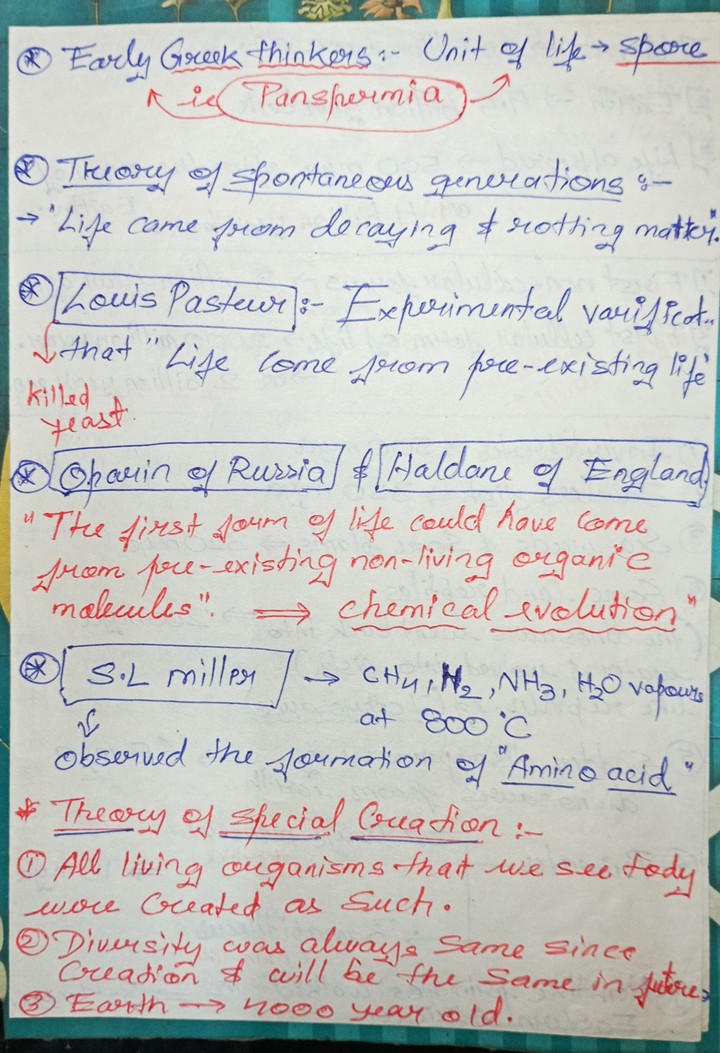 * Early Greek thinkers :- Unit of life → spore
ie Panspermia
* Theory of spontaneous generations :-
→ "Life came from decaying & rotting matter."
* Louis Pasteur :- Experimental varificat..
that "Life Come from pre-existing life"
killed
yeast
* Oparin of Russia & Haldane of England
"The first form of life could have come
from pre-existing non-living organic
molecules". ⇒ chemical evolution"
* S.L miller → CH4, H2, NH3, H2O vapours
at 800 °C
observed the formation of "Amino acid"
* Theory of special Creation :-
① All living organisms that we see tody
were Created as Such.
② Diversity was always Same since
Creation & will be the Same in future.
③ Earth → 4000 year old.